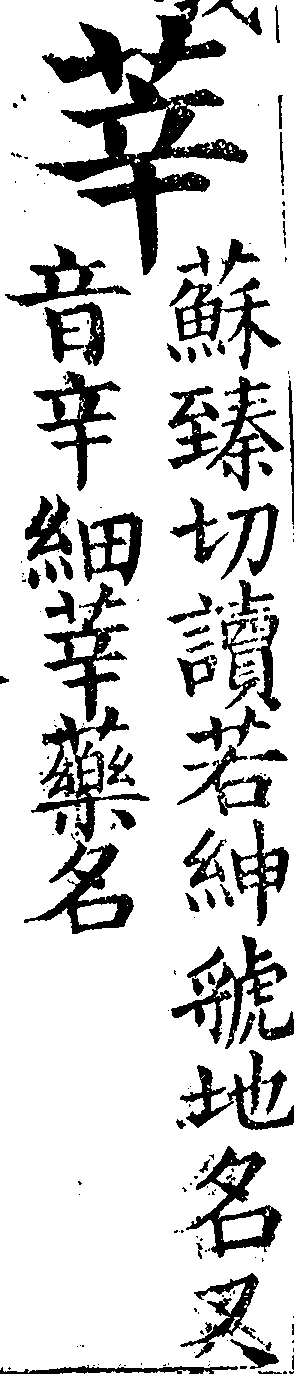 莘
蘇臻切讀若紳虢地名又
音辛細莘藥名